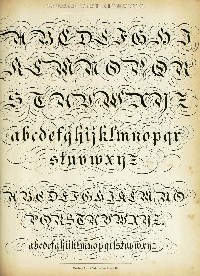 A B C D E F G H I
K L M N O P Q R
S T U V W X Y Z
abcdefghijklmnopqr
stuvwxyz
A B C D E F G H I K L M N O
P Q R S T U V W X Y Z
abcdefghijklmnopqrstuvwxyz